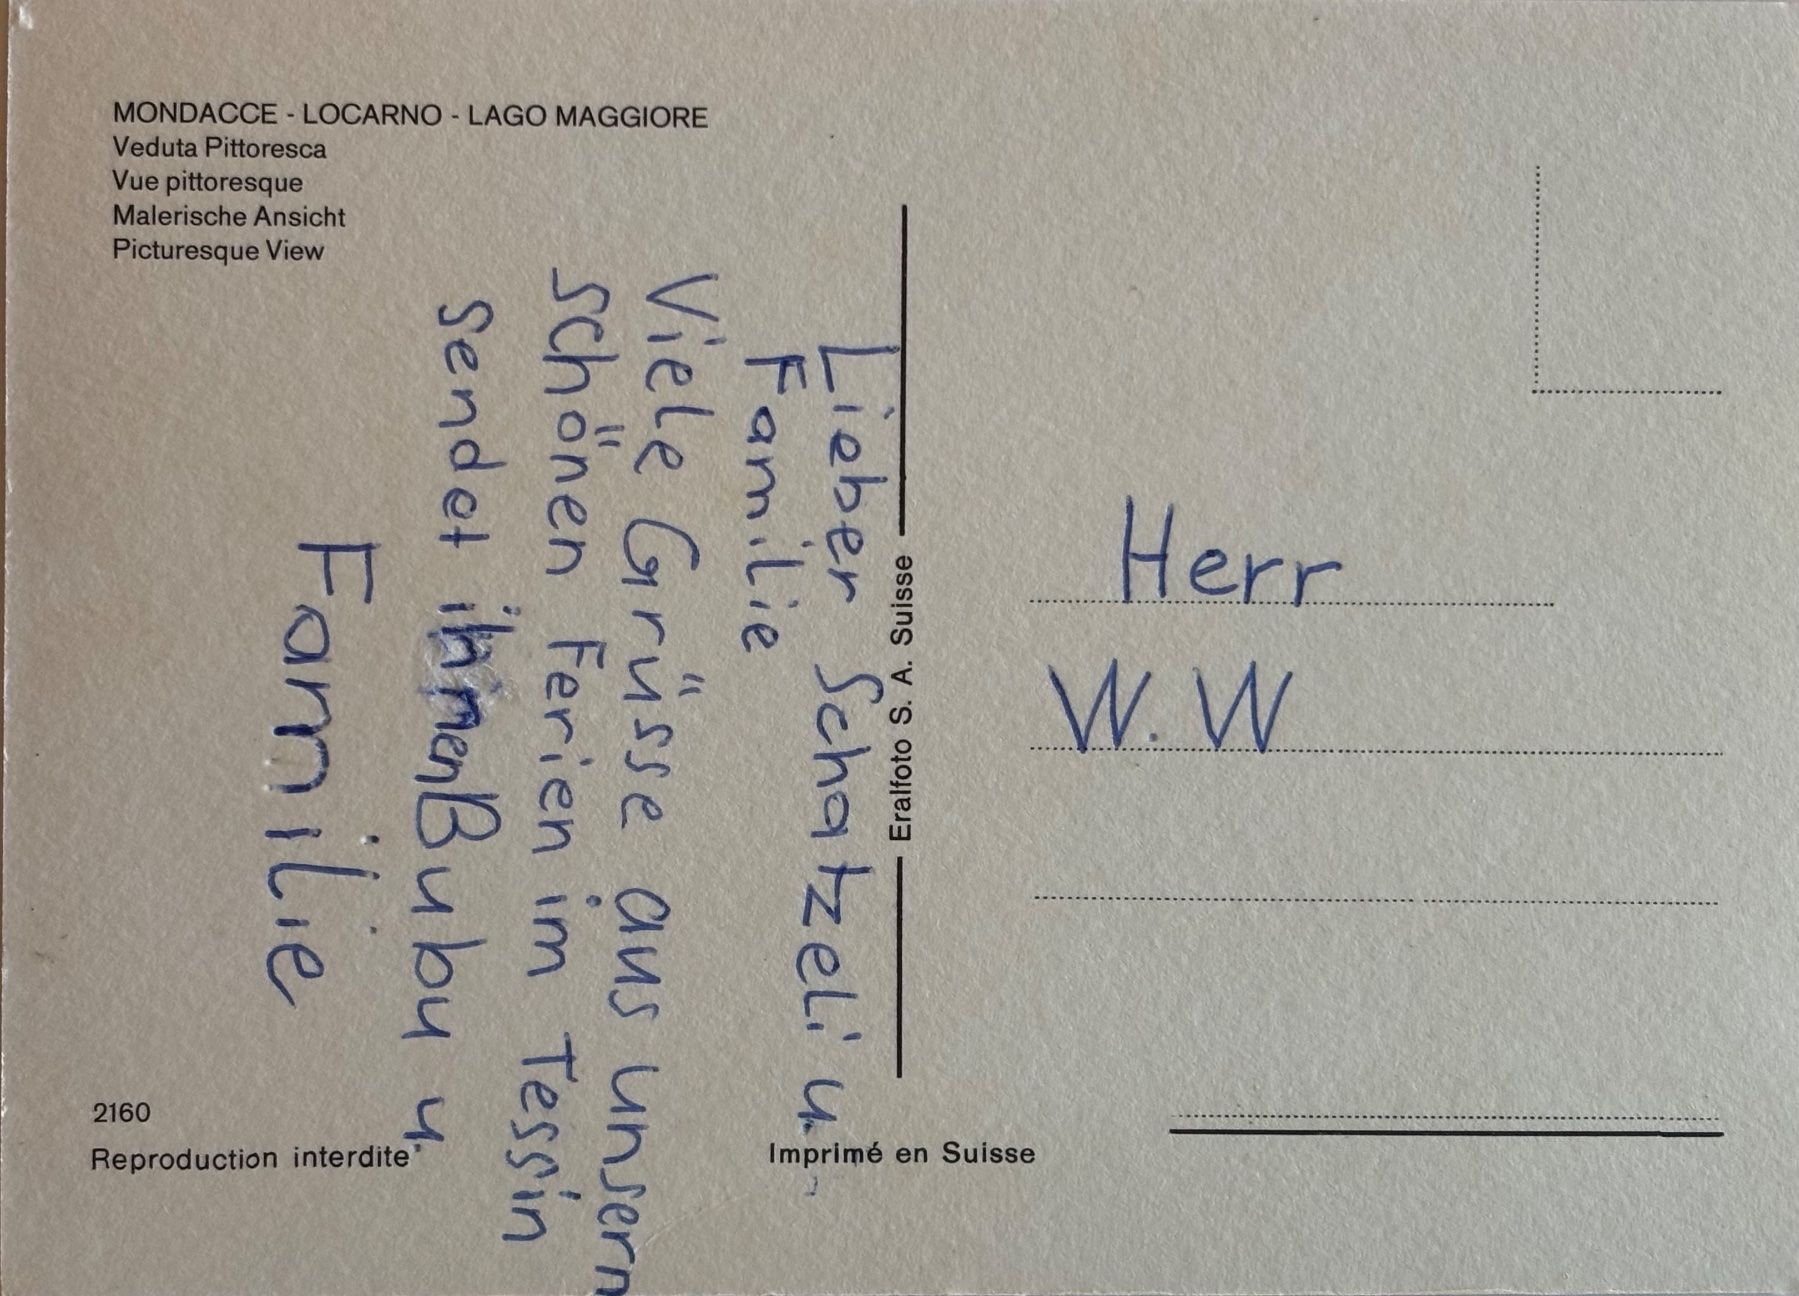 MONDACCE - LOCARNO - LAGO MAGGIORE
Veduta Pittoresca
Vue pittoresque
Malerische Ansicht
Picturesque View
Lieber Schatzeli u.
Familie
Viele Grüsse aus unsern
Schönen Ferien im Tessin
sendet ihnen Bubu u.
Familie
2160
Reproduction interdite
Eralfoto S. A. Suisse
Imprimé en Suisse
Herr
W. W